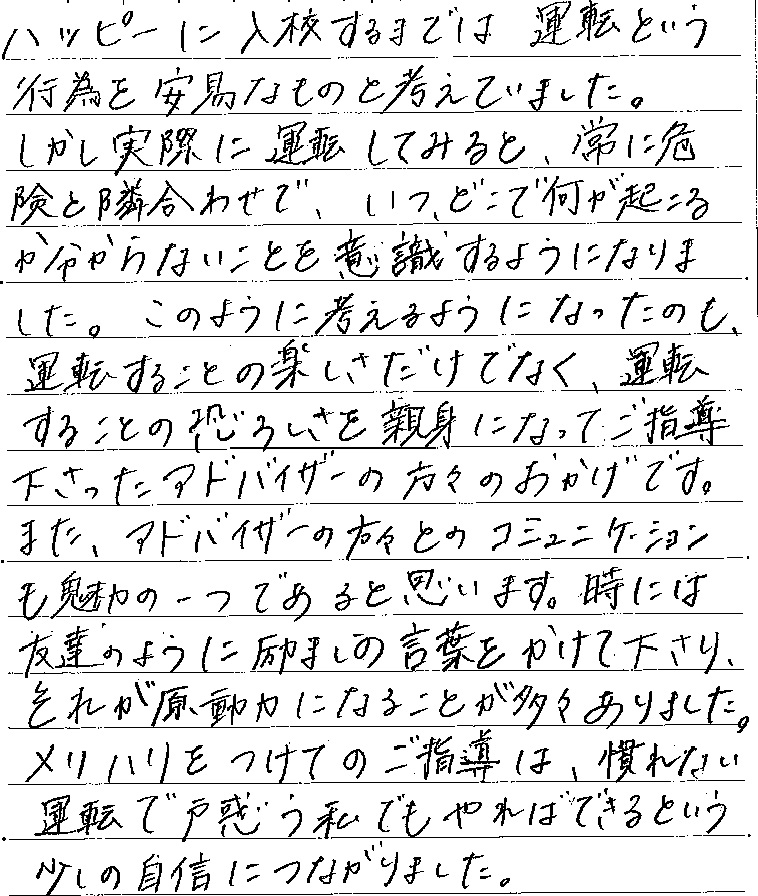 ハッピーに入校するまでは運転という
行為を安易なものと考えていました。
しかし実際に運転してみると、常に危
険と隣合わせで、いつ、どこで何が起こる
か分からないことを意識するようになりま
した。このように考えるようになったのも、
運転することの楽しさだけでなく、運転
することの恐ろしさを親身になってご指導
下さったアドバイザーの方々のおかげです。
また、アドバイザーの方々とのコミュニケーション
も魅力の一つであると思います。時には
友達のように励ましの言葉をかけて下さり、
それが原動力になることが多々ありました。
メリハリをつけてのご指導は、慣れない
運転で戸惑う私でもやればできるという
少しの自信につながりました。